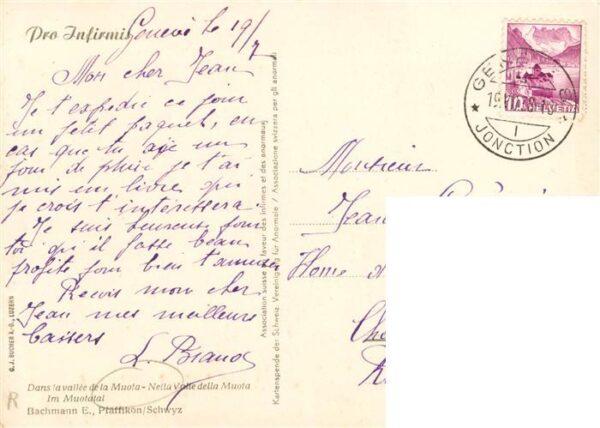 Pro Infirmis
Genève le 19/7
Mon cher Jean
Je t'expédie ce jour
un petit paquet, en
cas que tu aie un
jour de pluie je t'ai
mis un livre qui
je crois t'intéressera
Je suis heureuse pour
toi qu'il fasse beau
profite pour bien t'amuser
Reçois mon cher
Jean mes meilleurs
baisers
L.
G. J. BUCHER A.-G., LUZERN
Dans la vallée de la Muota - Nella Valle della Muota
Im Muotatal
Bachmann E., Pfäffikon/Schwyz
R
Association suisse en faveur des infirmes et des anormaux
Kartenspende der Schweiz. Vereinigung für Anormale / Associazione svizzera per gli anormali
JONCTION
1
Monsieur
Jean
Home